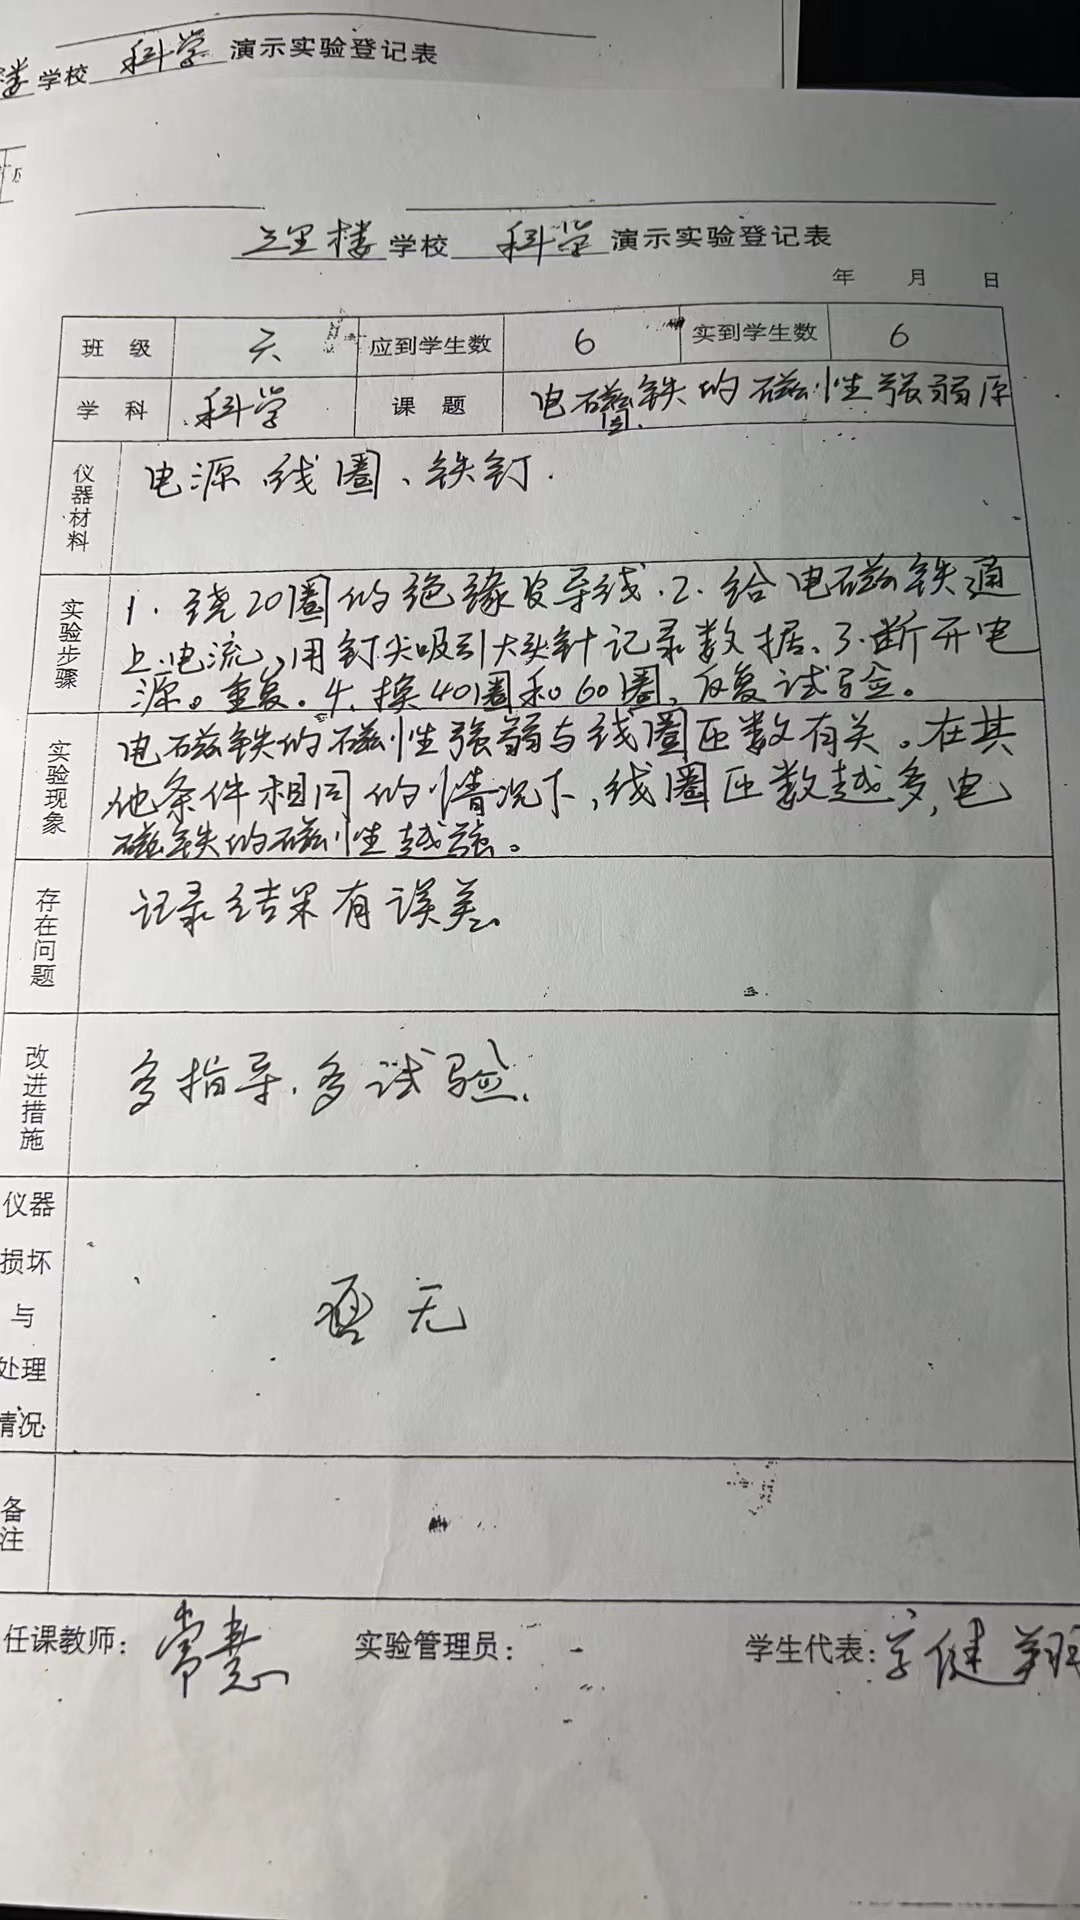 楼学校 科学 演示实验登记表
三里楼学校 科学 演示实验登记表
年 月 日
班级 六 应到学生数 6 实到学生数 6
学科 科学 课题 电磁铁的磁性强弱原
因.
仪器材料 电源、线圈、铁钉.
实验步骤 1.绕20圈的绝缘皮导线.2.给电磁铁通
上电流,用钉尖吸引大头针记录数据.3.断开电
源。重复.4.换40圈和60圈,反复试验。
实验现象 电磁铁的磁性强弱与线圈匝数有关。在其
他条件相同的情况下,线圈匝数越多,电
磁铁的磁性越强。
存在问题 记录结果有误差、
改进措施 多指导.多试验.
仪器损坏与处理情况 暂无
备注
任课教师: 常慧 实验管理员: 学生代表: 健翔